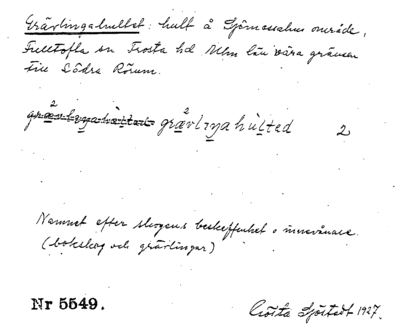 Grävlingahultet: hult å Sjömossahus område,
Fulltofta sn Frosta hd Mlm län nära gränsen
till Södra Rörum.
grävlıŋahùlted 2
Namnet efter skogens beskaffenhet o innevånare
(bokskog och grävlingar)
Nr 5549. Gösta Sjöstedt 1927.